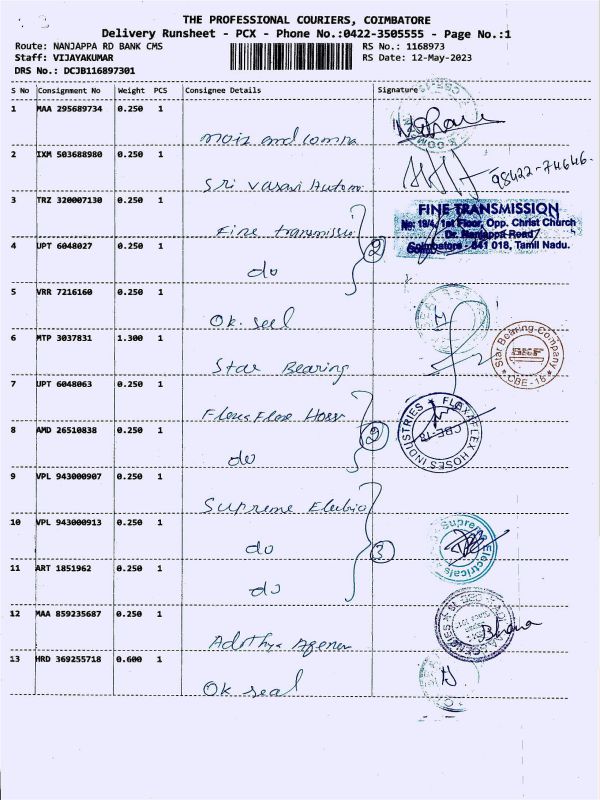 THE PROFESSIONAL COURIERS, COIMBATORE
Delivery Runsheet - PCX - Phone No.:0422-3505555 - Page No.:1
Route: NANJAPPA RD BANK CMS
RS No.: 1168973
Staff: VIJAYAKUMAR
RS Date: 12-May-2023
DRS No.: DCJB116897301
S No Consignment No Weight PCS Consignee Details Signature
1 MAA 295689734 0.250 1
2 IXM 503688980 0.250 1
Sri Vasavi Autom
98422-74646.
3 TRZ 320007130 0.250 1
Fine transmissi
FINE TRANSMISSION
No: 19/4, 1st Floor, Opp. Christ Church
Dr. Nanjappa Road
Coimbatore - 641 018, Tamil Nadu.
4 UPT 6048027 0.250 1
do
2
5 VRR 7216160 0.250 1
Ok. seel
6 MTP 3037831 1.300 1
Star Bearing
Star Bearing Company
SKF
CBE-18
7 UPT 6048063 0.250 1
FLEXAFLEX HOSES INDUSTRIES
CBE-18
8 AMD 26510838 0.250 1
do
2
9 VPL 943000907 0.250 1
Supreme
10 VPL 943000913 0.250 1
do
3
Supreme Electricals
11 ART 1851962 0.250 1
do
12 MAA 859235687 0.250 1
Bhana
13 HRD 369255718 0.600 1
Ok seal